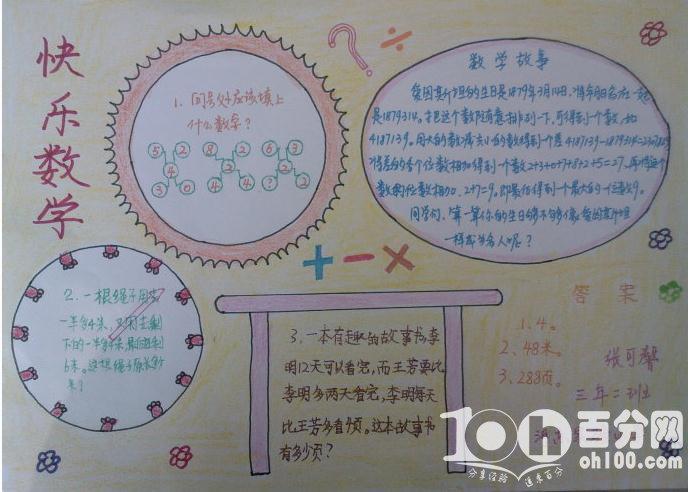 快乐数学
1. 问号处应该填上
什么数字？
5 2 8 2 6 3
4 2 2
3 0 4 4 ? 2
数学故事
爱因斯坦的生日是1879年3月14日，将年月日合在一起
是1879314，把这个数随意排列一下，可得到一个数，如
4187139。用大的数减去小的数得到一个差4187139-1879314=2307825
将差的各个位数相加得到一个数2+3+0+7+8+2+5=27。再将这个
数的位数相加，2+7=9。即最后得到一个最大的一位数9。
同学们，算一算你的生日够不够像爱因斯坦
一样成为名人呢？
2. 一根绳子用去
一半多4米，又用去剩
下的一半多4米，最后还剩
6米。这根绳子原长多少
米？
3. 一本有趣的故事书，李
明12天可以看完，而王芳要比
李明多两天看完，李明每天
比王芳多看页。这本故事书
有多少页？
答案
1. 4。
2. 48米。
3. 288页。
张可馨
三年二班
10h百分网
oh100.com
分享经验 造来百分